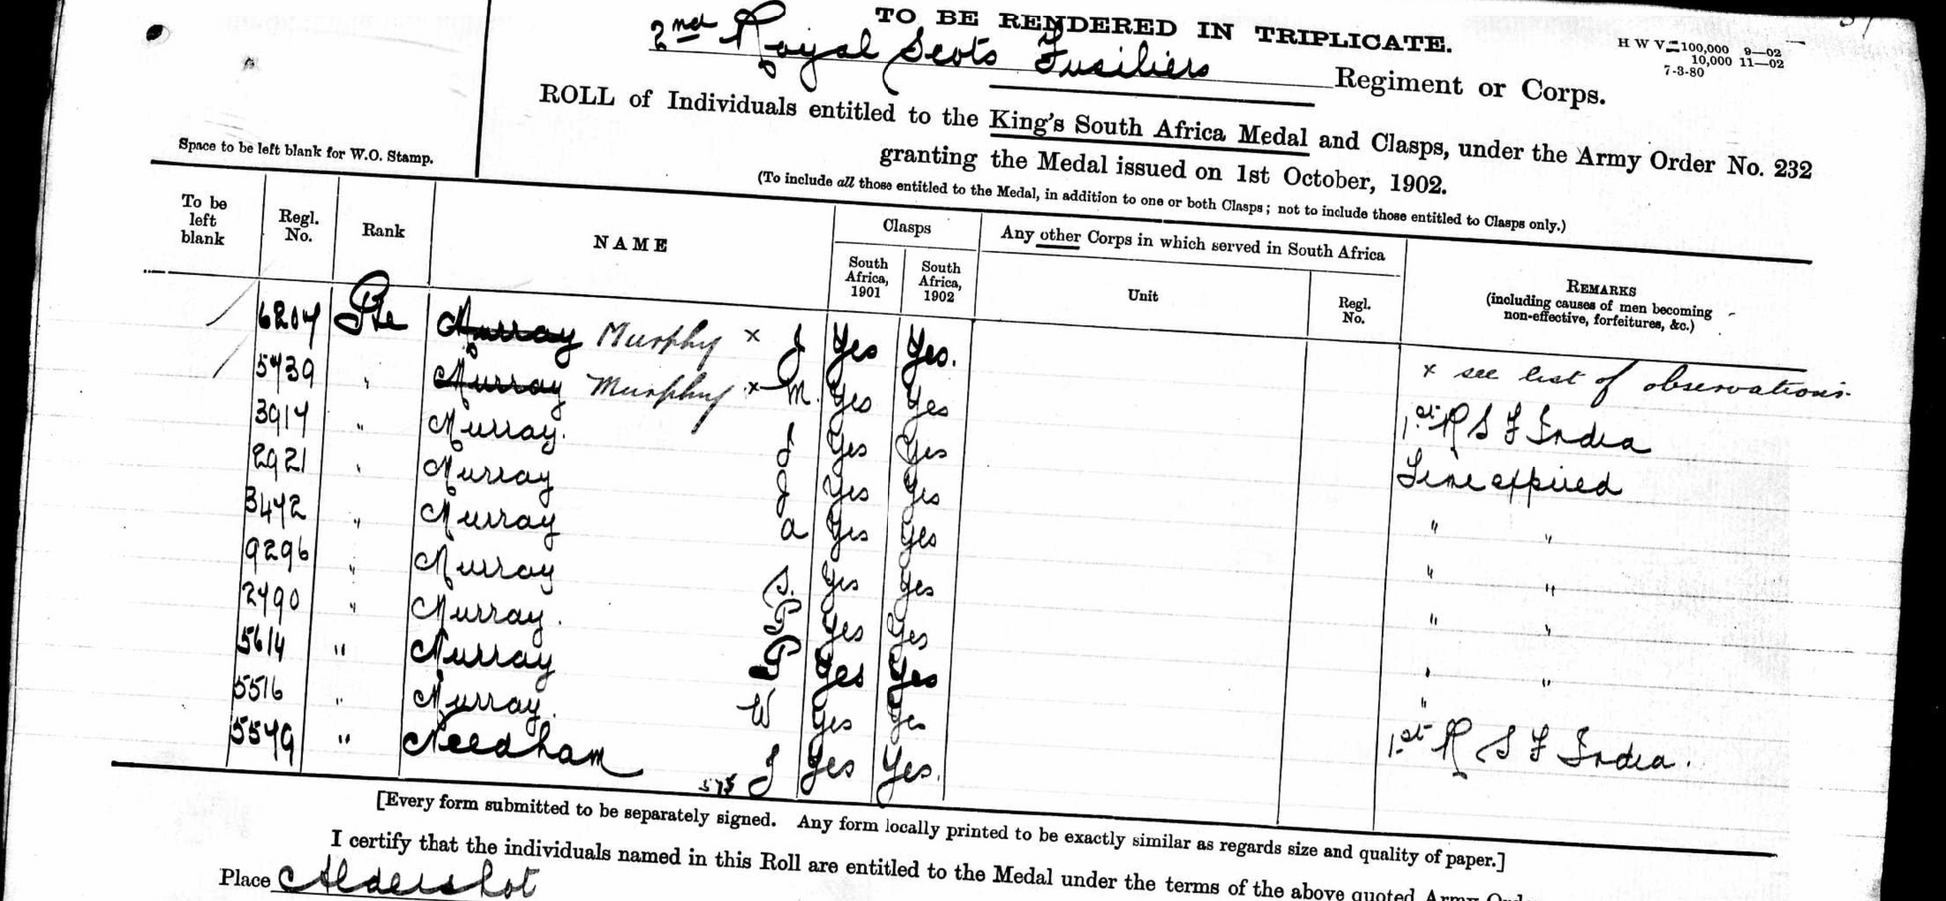 TO BE RENDERED IN TRIPLICATE.
2nd Royal Scots Fusiliers Regiment or Corps.
H W V—100,000 9—02
10,000 11—02
7-3-80
ROLL of Individuals entitled to the King's South Africa Medal and Clasps, under the Army Order No. 232
granting the Medal issued on 1st October, 1902.
(To include all those entitled to the Medal, in addition to one or both Clasps; not to include those entitled to Clasps only.)
Space to be left blank for W.O. Stamp.
To be left blank Regl. No. Rank NAME Clasps Any other Corps in which served in South Africa REMARKS
South Africa, 1901 South Africa, 1902 Unit Regl. No. (including causes of men becoming non-effective, forfeitures, &c.)
6204 Pte Murray Murphy x J Yes Yes.
x see list of observations
5439 " Murray Murphy x M. Yes Yes 1st R S F India
3914 " Murray. J Yes Yes Time expired
2921 " Murray J Yes Yes " "
3472 " Murray A Yes Yes " "
9296 " Murray S. Yes Yes " "
2490 " Murray. P Yes Yes " "
5614 " Murray P Yes Yes "
5516 " Murray. W Yes Yes 1st R S F India.
5549 " Needham J Yes Yes.
[Every form submitted to be separately signed. Any form locally printed to be exactly similar as regards size and quality of paper.]
I certify that the individuals named in this Roll are entitled to the Medal under the terms of the above quoted Army
Place Aldershot